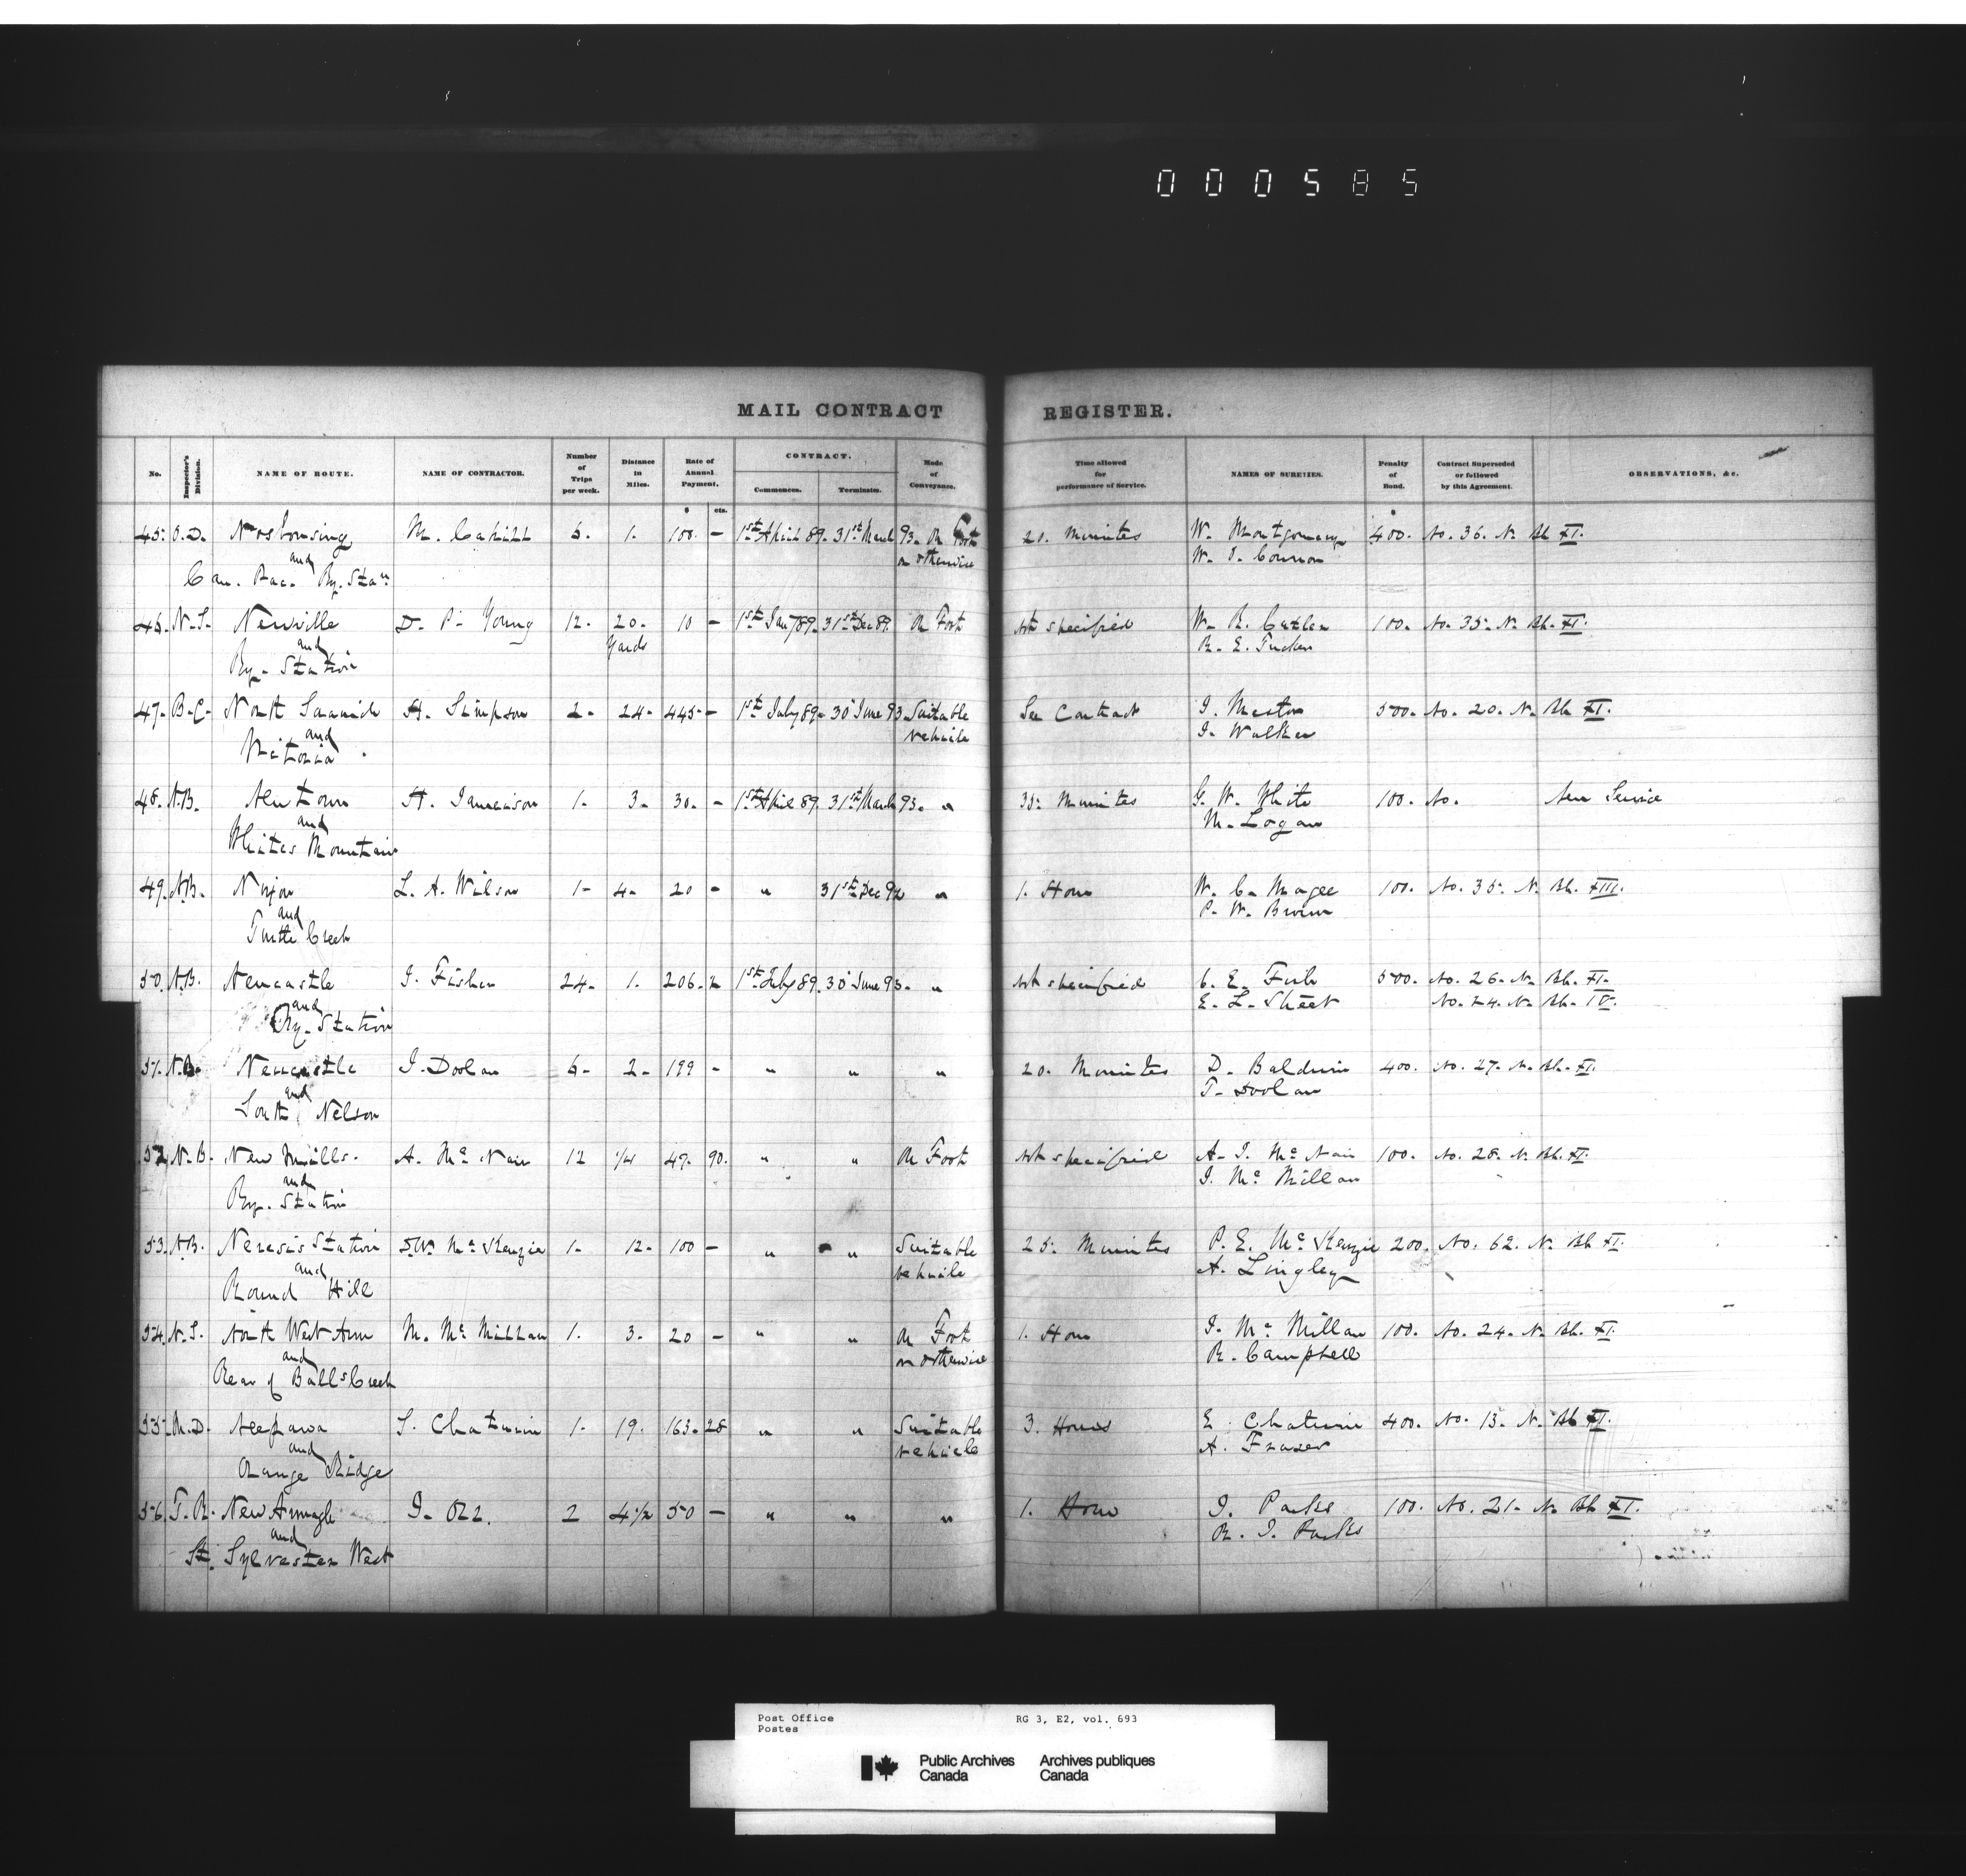 000585
MAIL CONTRACT REGISTER.
No. Inspector's Division. NAME OF ROUTE. NAME OF CONTRACTOR. Number of Trips per week. Distance in Miles. Rate of Annual Payment. CONTRACT. Commences. Terminates. Mode of Conveyance. Time allowed for performance of Service. NAMES OF SURETIES. Penalty of Bond. Contract Superseded or followed by this Agreement. OBSERVATIONS, &c.
$ cts.
45. O.D. Nosbonsing M. Cahill 6. 1. 100. - 1st April 89. 31st March 93. On Foot 20. Minutes W. Montgomery 400. No. 36. N. Bk XI.
and or otherwise W. O. Connor
Can. Pac. Ry. Stan
46. N.S. Newville D. P. Young 12. 20. 10 - 1st Jany 89. 31st Dec 89. On Foot Not specified W. R. 100. No. 35. N. Bk. XI.
and Yards R. E. Tucker
Ry. Station
47. B.C. North Saanich H. Simpson 2. 24. 445. - 1st July 89. 30 June 93. Suitable See Contract J. 500. No. 20. N. Bk XI.
and vehicle J. Walker
Victoria
48. N.B. Newtown H. Jamieson 1. 3. 30. - 1st April 89. 31st March 93. " 35. Minutes G. W. White 100. No. New Service
and M. Logan
Whites Mountain
49. N.B. Nixon L. A. Wilson 1- 4. 20 - " 31st Dec 92 " 1. Hour W. C. Magee 100. No. 35. N. Bk. XIII.
and P. W. Brown
Turtle Creek
50. N.B. Newcastle J. Fisher 24. 1. 206. 2 1st July 89. 30 June 93. " Not specified C. E. Fish 500. No. 26. N. Bk. XI.
and E. L. Street No. 24. N. Bk. IV.
Ry. Station
51. N.B. Newcastle J. Doolan 6. 2. 199 - " " " 20. Minutes D. Baldwin 400. No. 27. N. Bk. XI.
and T. Doolan
South Nelson
52. N.B. New Mills. A. Mc Nair 12 1/4 47. 90. " " On Foot Not specified A. J. Mc Nair 100. No. 28. N. Bk. XI.
and J. Mc Millan
Ry. Station
53. N.B. Nerepis Station Mc Kenzie 1. 12. 100 - " " Suitable 25. Minutes P. E. Mc Kenzie 200. No. 62. N. Bk XI.
and vehicle A. Lingley
Round Hill
54. N.S. North West Arm M. Mc Millan 1. 3. 20 - " " On Foot 1. Hour J. Mc Millan 100. No. 24. N. Bk. XI.
and or otherwise R. Campbell
Rear of Balls Creek
55. M.D. Neepawa S. Chatwin 1. 19. 163. 28 " " Suitable 3. Hours E. Chatwin 400. No. 13. N. Bk XI.
and vehicle A. Fraser
Orange Ridge
56. T.R. New Armagh J. Orr. 2 4 1/2 50 - " " " 1. Hour J. Parks 100. No. 21. N. Bk XI.
and R. J. Parks
St. Sylvester West
Post Office RG 3, E2, vol. 693
Postes
Public Archives Archives publiques
Canada Canada